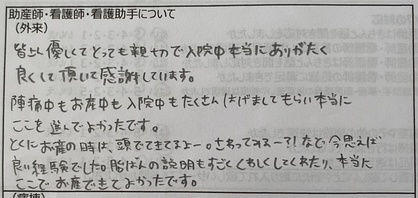 助産師・看護師・看護助手について
(外来)
皆さん優しくてとっても親切で入院中本当にありがたく
良くして頂いて感謝しています。
陣痛中もお産中も入院中もたくさんはげましてもらい本当に
ここを選んでよかったです。
とくにお産の時は、頭でてきてるよー。さわってみるー?!など今思えば
良い経験でした。胎ばんの説明もすごくくわしくしてくれたり、本当に
ここでお産できてよかったです。